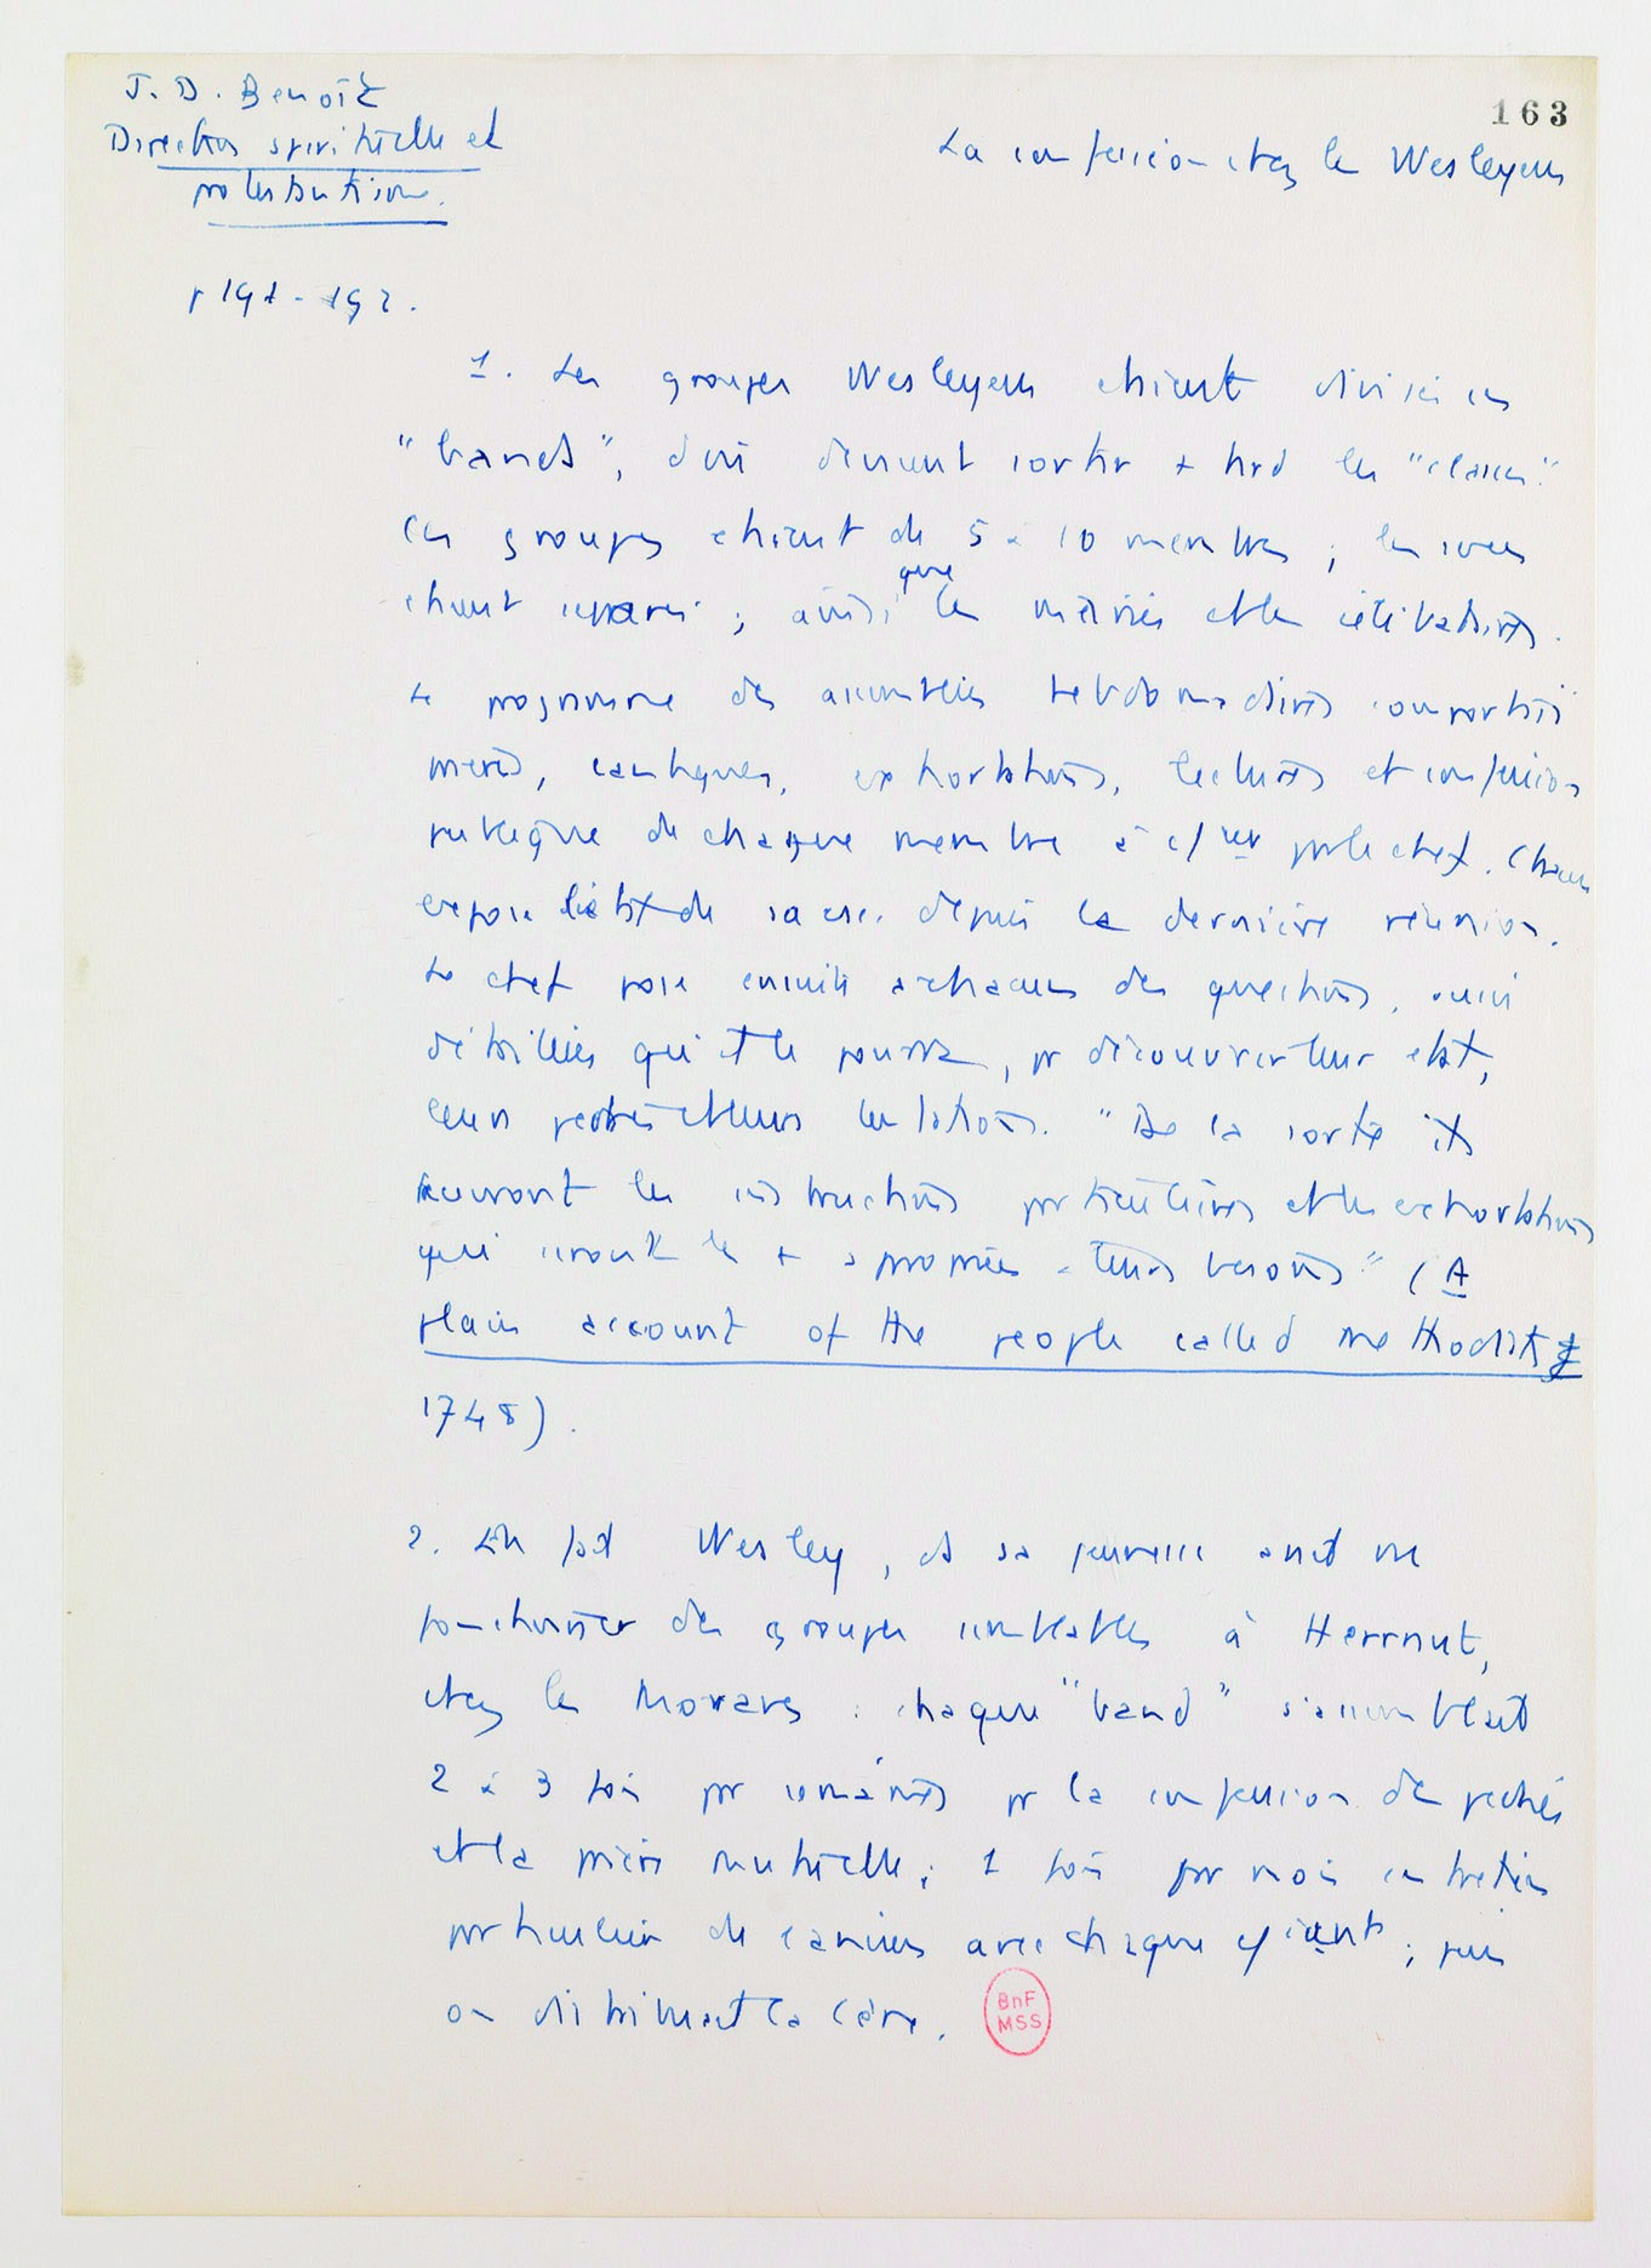 J. D. Benoît
Direction spirituelle et
protestantisme.
163
La confession chez les Wesleyens
p 191-192.
1. Les groupes Wesleyens étaient divisés en
"bands", d'où devaient sortir + tard les "classes".
Ces groupes étaient de 5 à 10 membres ; les sexes
étaient séparés ; ainsi que les mariés et les célibataires.
Le programme des assemblées hebdomadaires comportait
prières, cantiques, exhortations, lectures et confession
publique de chaque membre à par le chef. Chacun
expose l'état de sa depuis la dernière réunion.
Le chef pose ensuite à chacun des questions, aussi
détaillées qu'il le pourra, pr découvrir leur état,
leurs péchés et leurs tentations. "De la sorte ils
recevront les instructions particulières et les exhortations
qui seront les + appropriées à leurs besoins" (A
plain account of the people called methodists
1748).
2. En fait Wesley, ds sa jeunesse avait vu
fonctionner des groupes semblables à Herrnut,
chez les Moraves : chaque "band" s'assemblait
2 à 3 fois par semaines pr la confession des péchés
et la prière mutuelle ; 1 fois par mois entretien
particulier de avec chaque ; puis
on distribuait la Cène.
BnF
MSS